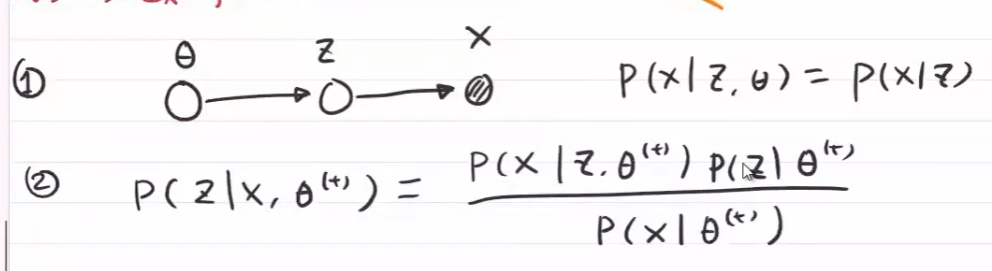 θ Z X
① P(X|Z,θ) = P(X|Z)
② P(Z|X,θ^(t)) = P(X|Z,θ^(t)) P(Z|θ^(t)) / P(X|θ^(t))